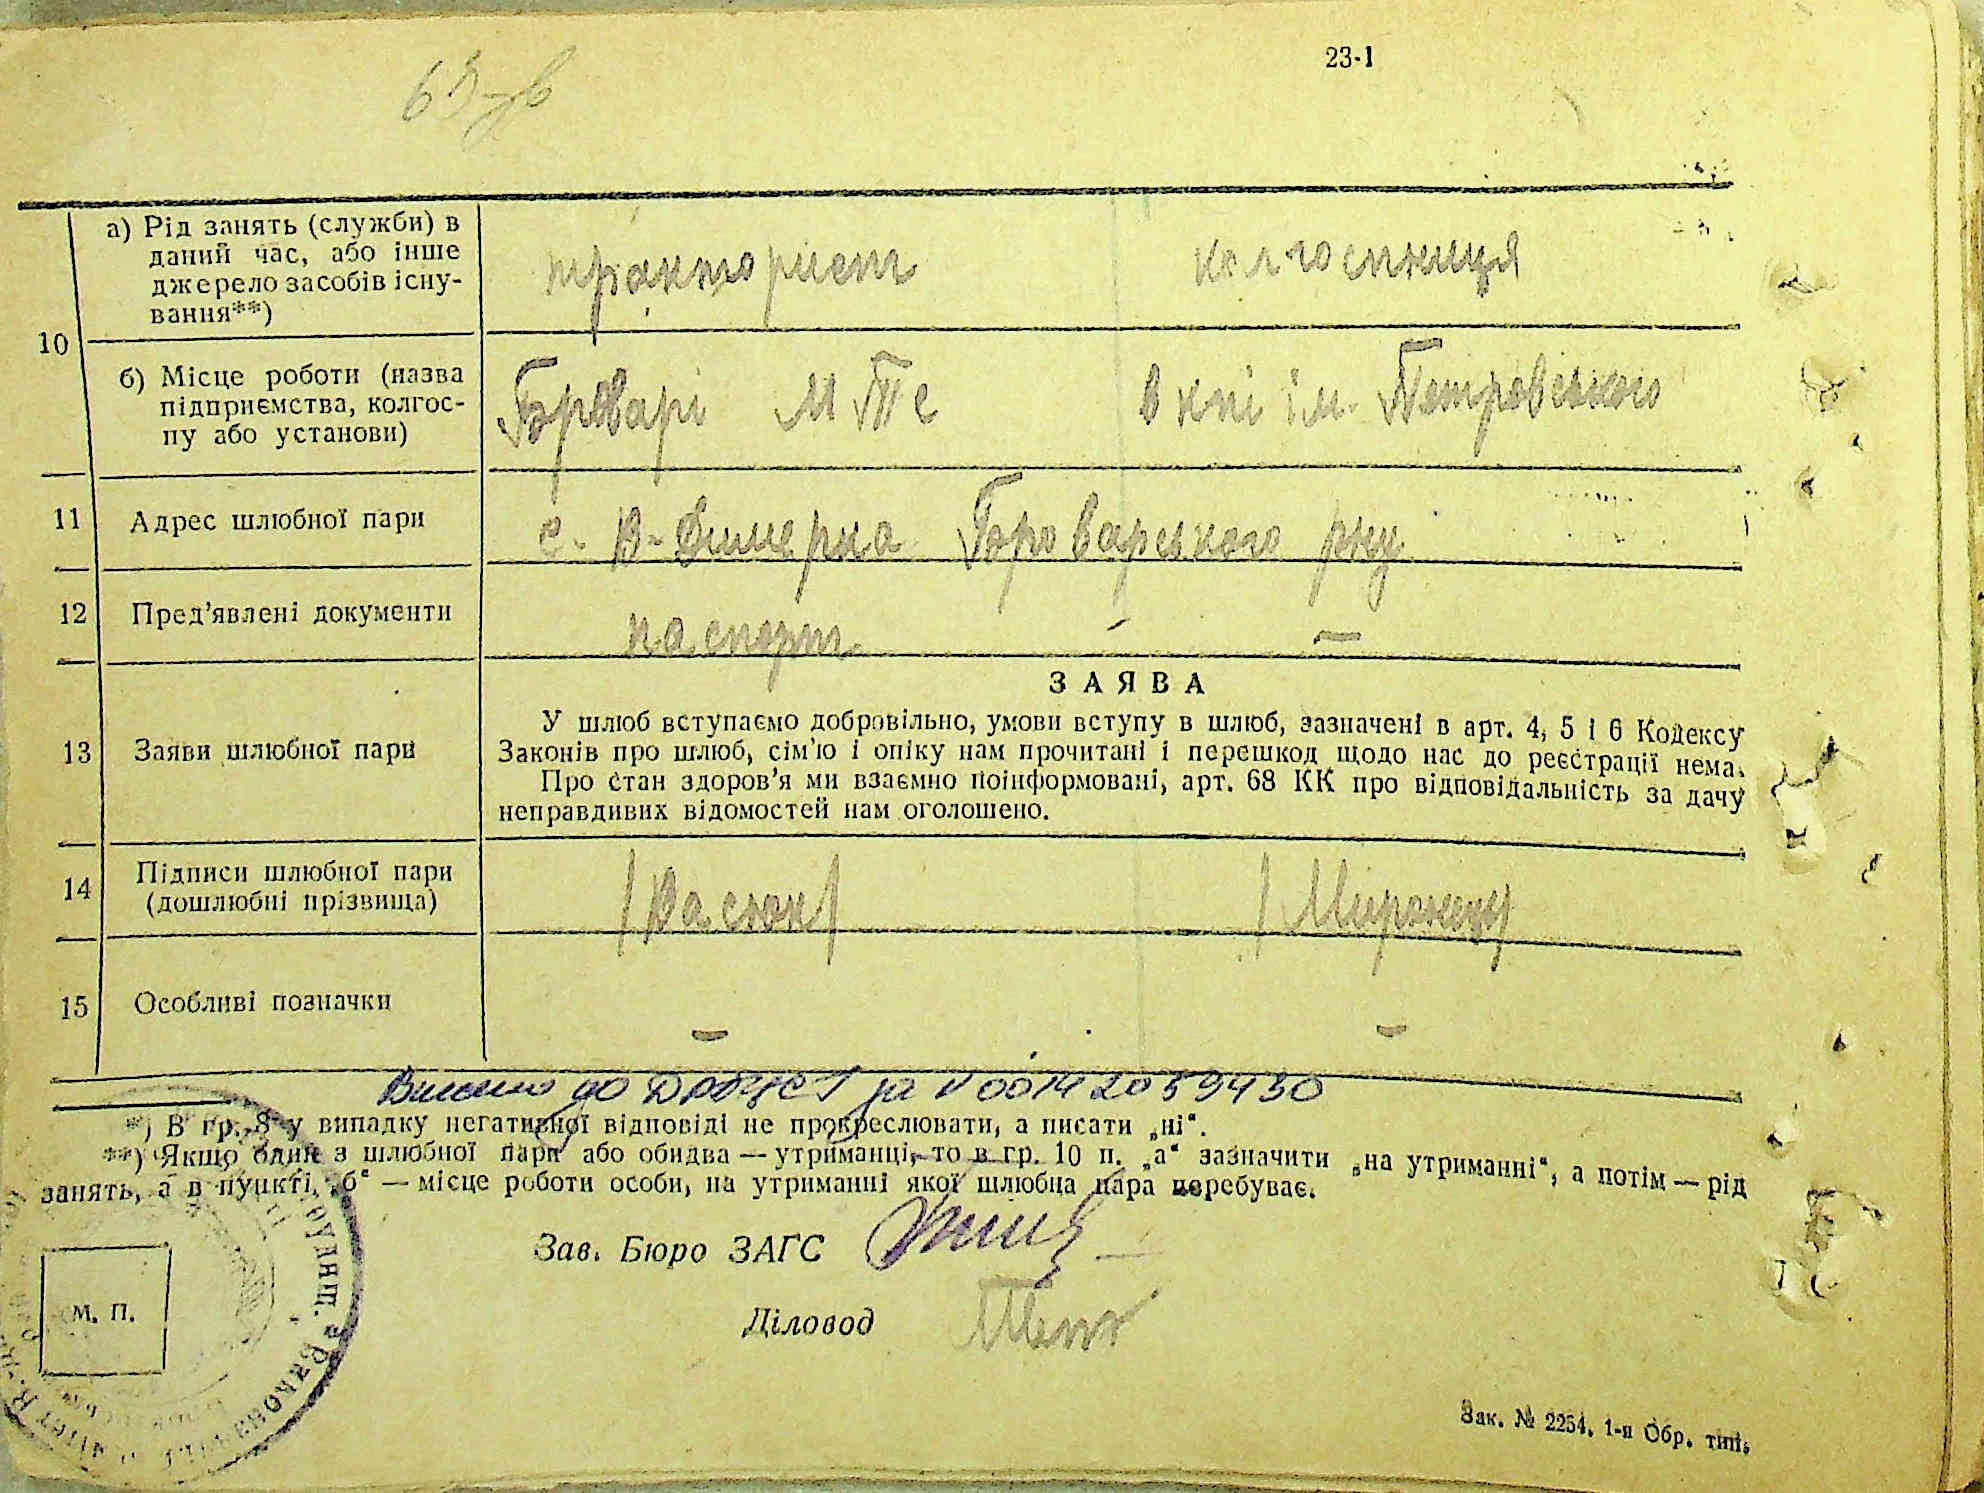 63-зв
23-1
10
а) Рід занять (служби) в
даний час, або інше
джерело засобів існу-
вання**)
тракторист
колгоспниця
б) Місце роботи (назва
підприємства, колгос-
пу або установи)
Брварі МТС
в к-пі ім. Петровського
11
Адрес шлюбної пари
с. В-Димерка Броварського р-ну
12
Пред'явлені документи
паспорт
—
13
Заяви шлюбної пари
ЗАЯВА
У шлюб вступаємо добровільно, умови вступу в шлюб, зазначені в арт. 4, 5 і 6 Кодексу
Законів про шлюб, сім'ю і опіку нам прочитані і перешкод щодо нас до реєстрації нема.
Про стан здоров'я ми взаємно поінформовані, арт. 68 КК про відповідальність за дачу
неправдивих відомостей нам оголошено.
14
Підписи шлюбної пари
(дошлюбні прізвища)
/Васюк/
15
Особливі позначки
— —
до ДРАЦСГ за № 00142059430
*) В гр. 8 у випадку негативної відповіді не прокреслювати, а писати „ні“.
**) Якщо один з шлюбної пари або обидва — утриманці, то в гр. 10 п. „а“ зазначити „на утриманні“, а потім — рід
занять, а в пункті „б“ — місце роботи особи, на утриманні якої шлюбна пара перебуває.
Зав. Бюро ЗАГС
Діловод
М. П.
Зак. № 2254. 1-а Обр. тип.